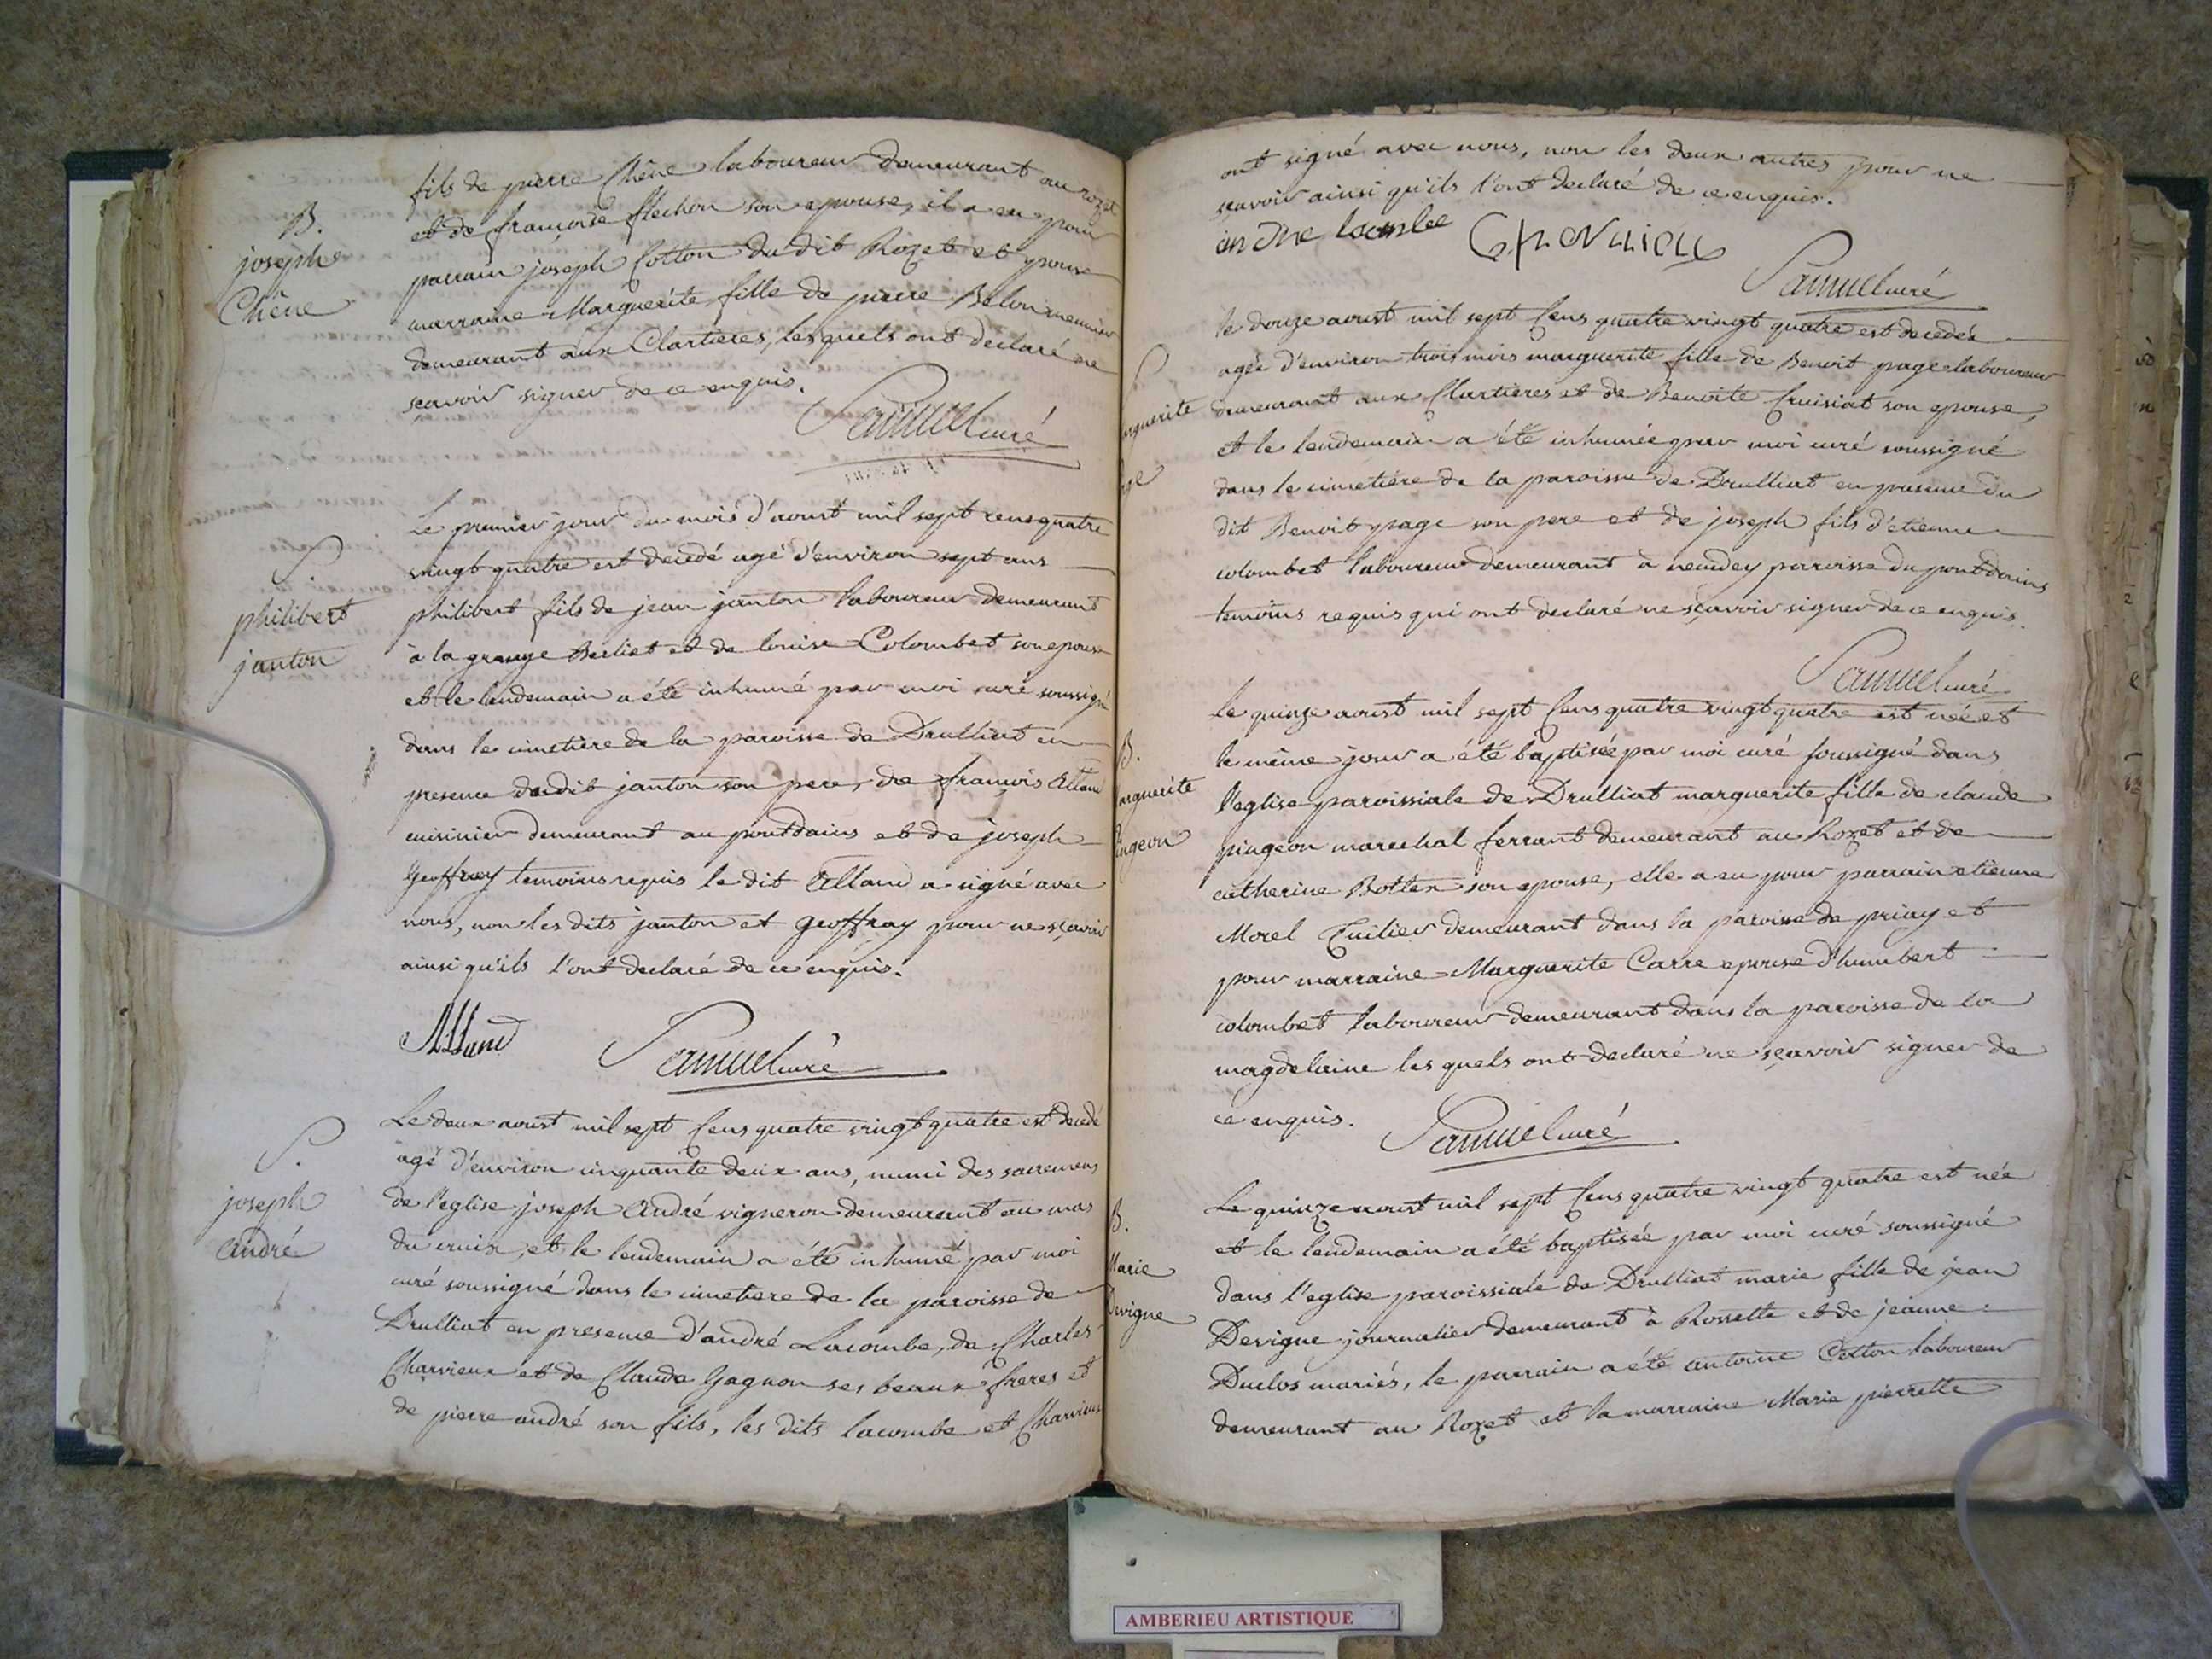 B.
joseph
Chêne
fils de pierre Chêne laboureur demeurant au rozet
et de françoise flechon son epouse, il a eu pour
parrain joseph Cotton du dit Rozet et pour
marraine Marguerite fille de pierre Belon meunier
demeurant aux Clartieres, lesquels ont declaré ne
sçavoir signer de ce enquis.
Samuel curé
S.
philibert
janton
Le premier jour du mois d'aoust mil sept cens quatre
vingt quatre est decedé agé d'environ sept ans
philibert fils de jean janton laboureur demeurant
à la grange Berliet et de louise Colombet son epouse
et le lendemain a été inhumé par moi curé soussigné
dans le cimetiere de la paroisse de Drulliat en
presence dudit janton son pere, de françois Alland
cuisinier demeurant au pontdains et de joseph
Geoffray temoins requis le dit Alland a signé avec
nous, non les dits janton et geoffray pour ne sçavoir
ainsi qu'ils l'ont declaré de ce enquis.
Alland
Samuel curé
S.
joseph
andré
Le deux aoust mil sept Cens quatre vingt quatre est decedé
agé d'environ cinquante deux ans, muni des sacremens
de l'eglise joseph André vigneron demeurant au mas
du cruix, et le lendemain a été inhumé par moi
curé soussigné dans le cimetiere de la paroisse de
Drulliat en presence d'andré Lacombe, de Charles
Charvieux et de Claude Gagnon ses beaux freres et
de pierre andré son fils, les dits lacombe et Charvieux
ont signé avec nous, non les deux autres pour ne
sçavoir ainsi qu'ils l'ont declaré de ce enquis.
an dre lacombe
Samuel curé
S
arguerite
ge
le douze aoust mil sept Cens quatre vingt quatre est decedée
agée d'environ trois mois marguerite fille de Benoit page laboureur
demeurant aux Clartieres et de Benoite Cruisiat son epouse,
et le lendemain a été inhumée par moi curé soussigné
dans le cimetiere de la paroisse de Drulliat en presence du
dit Benoit page son pere et de joseph fils d'etienne
colombet laboureur demeurant à neudey paroisse du pontdains
temoins requis qui ont declaré ne sçavoir signer de ce enquis.
Samuel curé
B.
arguerite
pingeon
Le quinze aoust mil sept Cens quatre vingt quatre est née et
le même jour a été baptisée par moi curé soussigné dans
l'eglise paroissiale de Drulliat marguerite fille de claude
pingeon marechal ferrant demeurant au Rozet et de
catherine Bottex son epouse, elle a eu pour parrain etienne
Morel Tuilier demeurant dans la paroisse de priay et
pour marraine Marguerite Carre epouse d'humbert
colombet laboureur demeurant dans la paroisse de la
magdelaine les quels ont declaré ne sçavoir signer de
ce enquis.
Samuel curé
B.
Marie
Devigne
Le quinze aoust mil sept Cens quatre vingt quatre est née
et le lendemain a été baptisée par moi curé soussigné
dans l'eglise paroissiale de Drulliat marie fille de jean
Devigne journalier demeurant à Rossette et de jeanne
Duclos mariés, le parrain a été antoine Cotton laboureur
demeurant au Rozet et la marraine Marie pierrette
AMBERIEU ARTISTIQUE